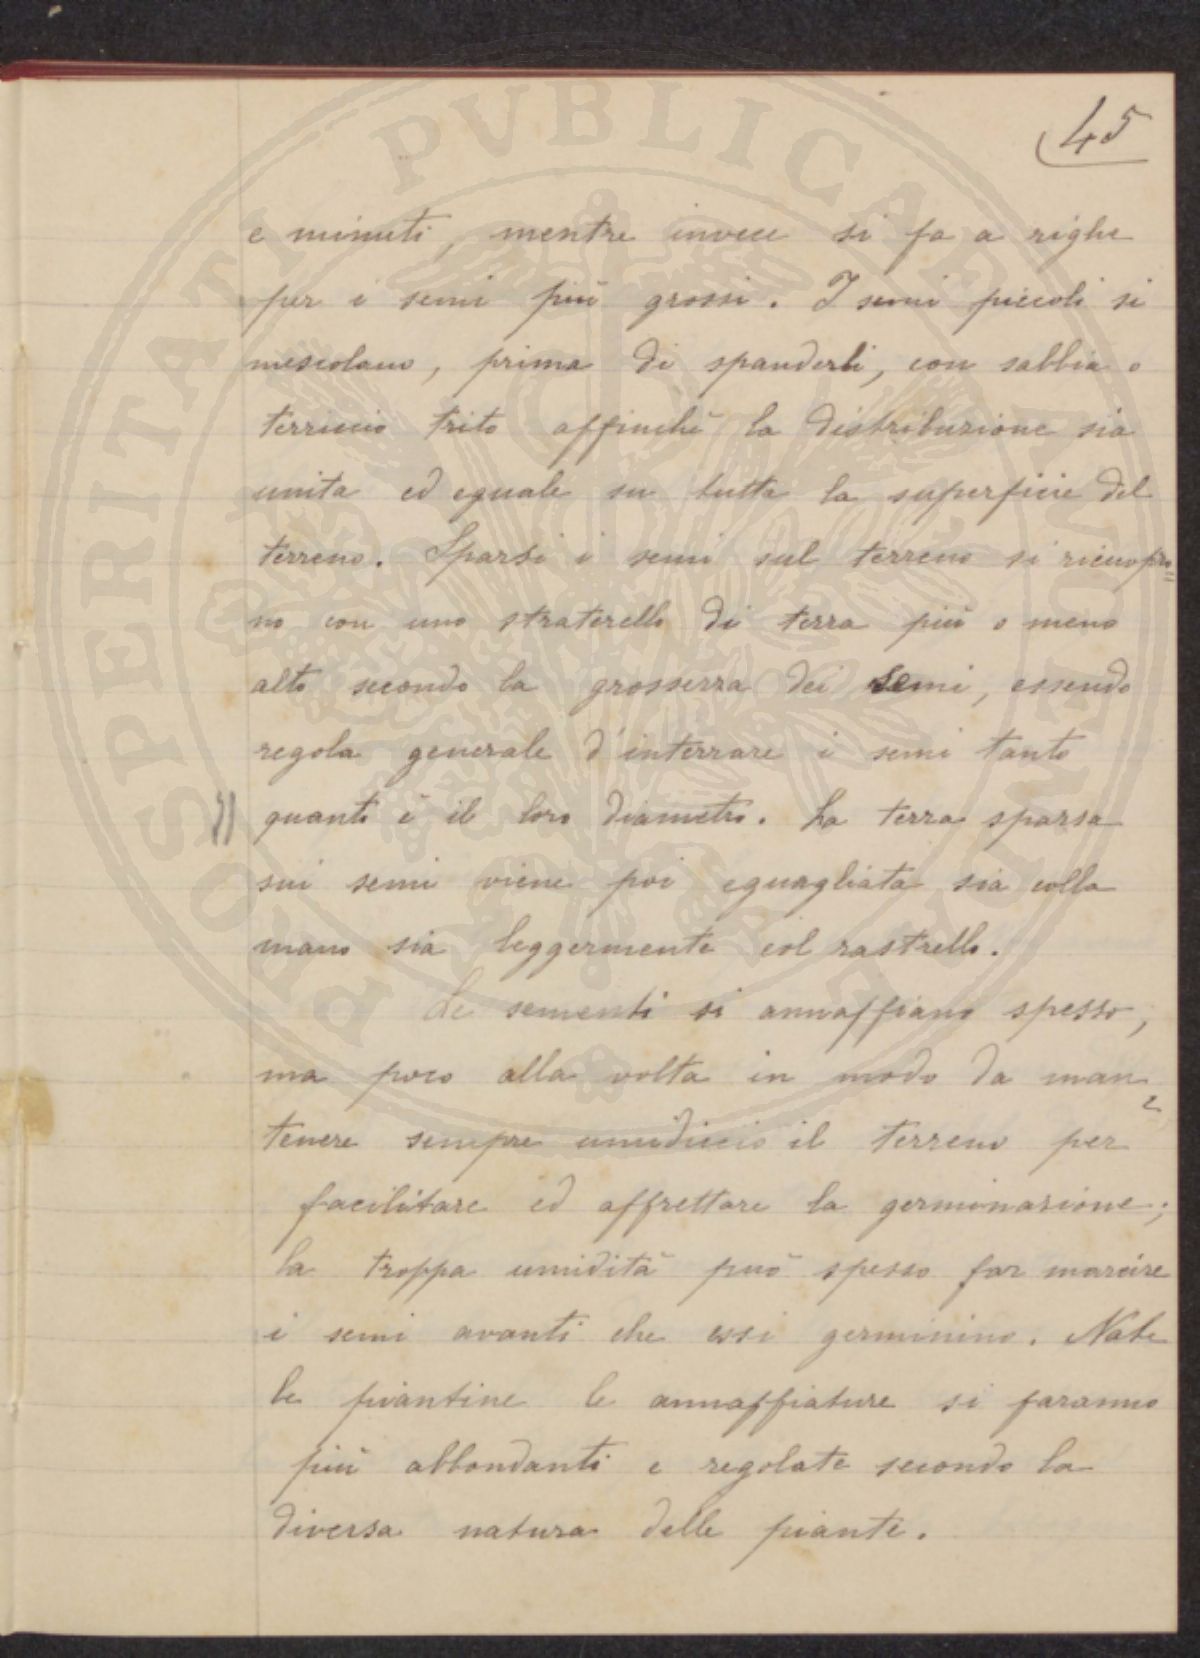 45
e minuti, mentre invece si fa a righe
per i semi più grossi. I semi piccoli si
mescolano, prima di spanderli, con sabbia o
terriccio trito affinchè la distribuzione sia
unita ed eguale su tutta la superficie del
terreno. Sparsi i semi sul terreno si ricuopro=
no con uno straterello di terra più o meno
alto secondo la grossezza dei semi, essendo
regola generale d'interrare i semi tanto
quanto è il loro diametro. La terra sparsa
sui semi viene poi eguagliata sia colla
mano sia leggermente col rastrello.
Le sementi si annaffiano spesso,
ma poco alla volta in modo da man=
tenere sempre umidiccio il terreno per
facilitare ed affrettare la germinazione;
la troppa umidità può spesso far marcire
i semi avanti che essi germinino. Nate
le piantine le annaffiature si faranno
più abbondanti e regolate secondo la
diversa natura delle piante.
PROSPERITATI PVBLICAE AVGENDAE